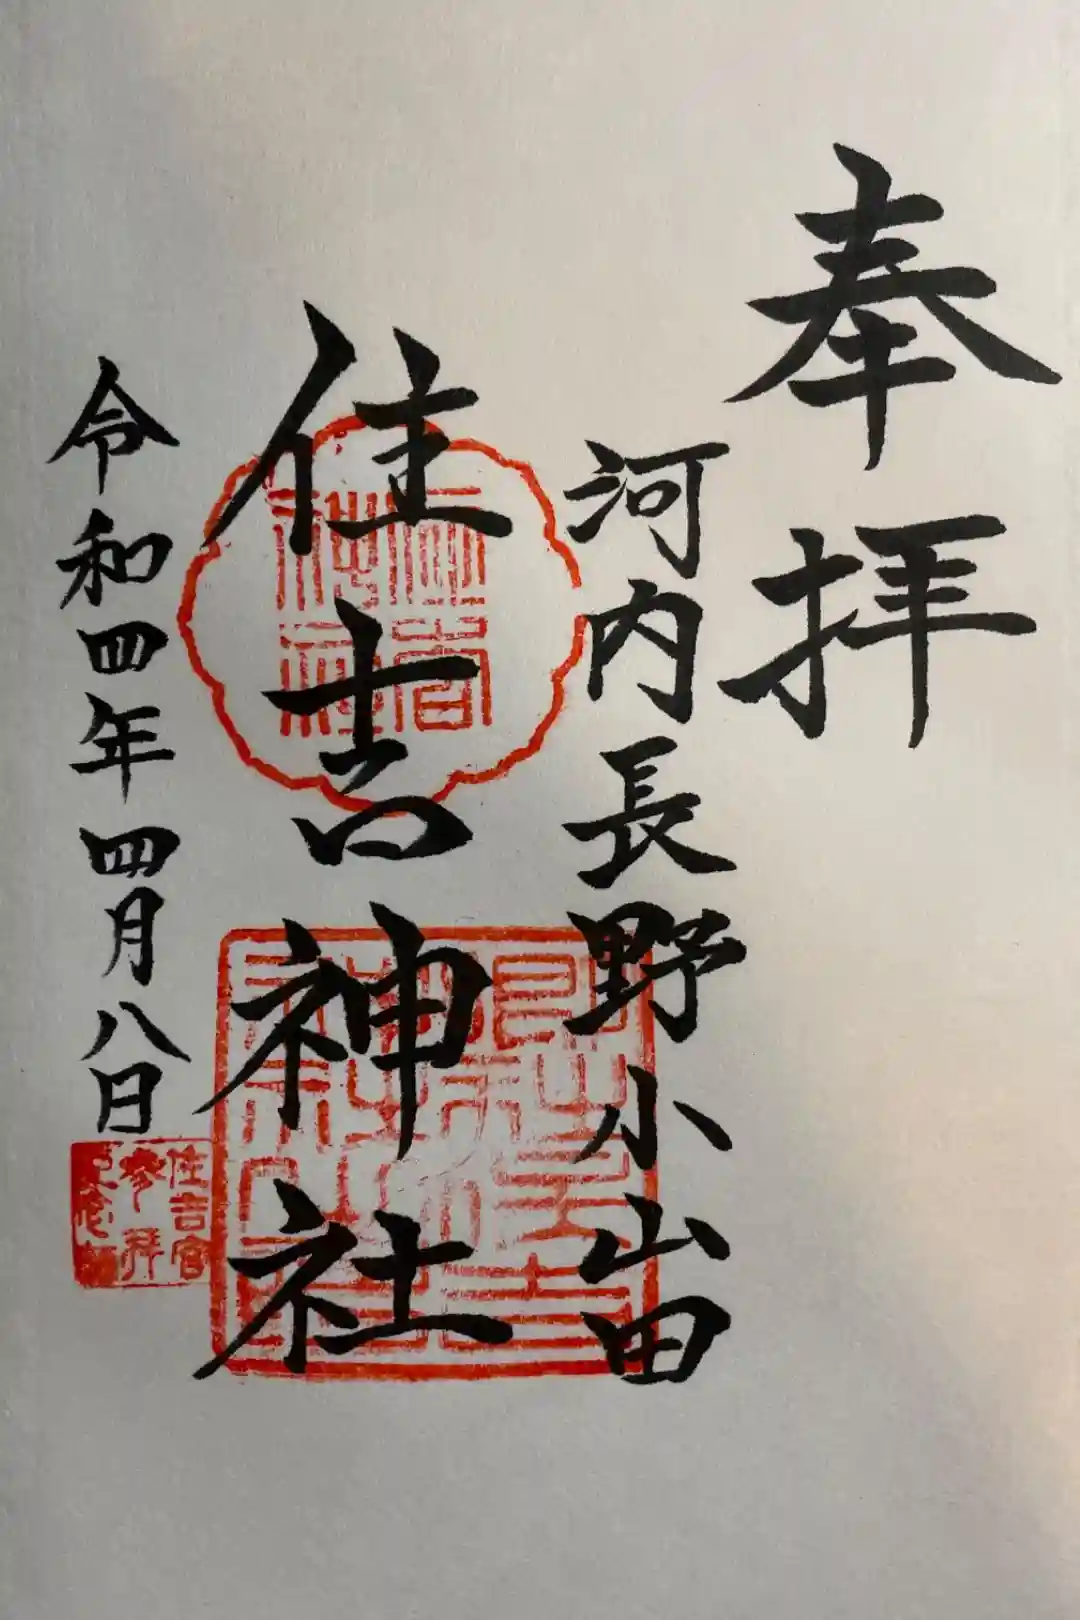 奉拝
河内長野小山田
住吉神社
令和四年四月八日
住吉宮
参拝